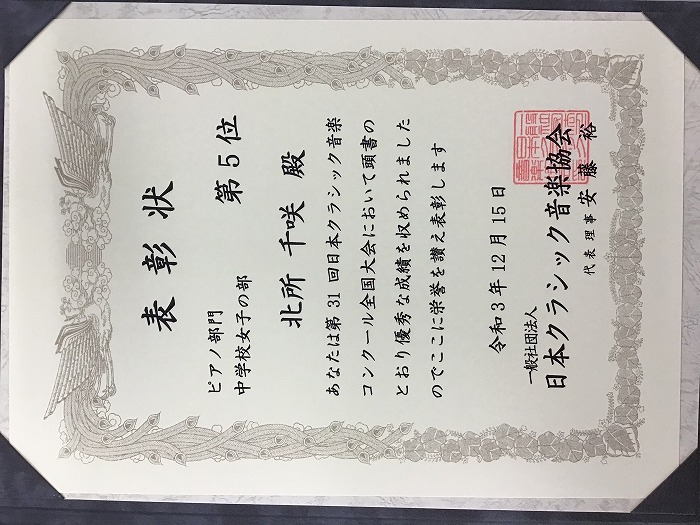 表彰状
ピアノ部門
中学校女子の部
第5位
北所 千咲 殿
あなたは第31回日本クラシック音楽
コンクール全国大会において頭書の
とおり優秀な成績を収められました
のでここに栄誉を讃え表彰します
令和3年12月15日
一般社団法人
日本クラシック音楽協会
代表理事 安藤 裕